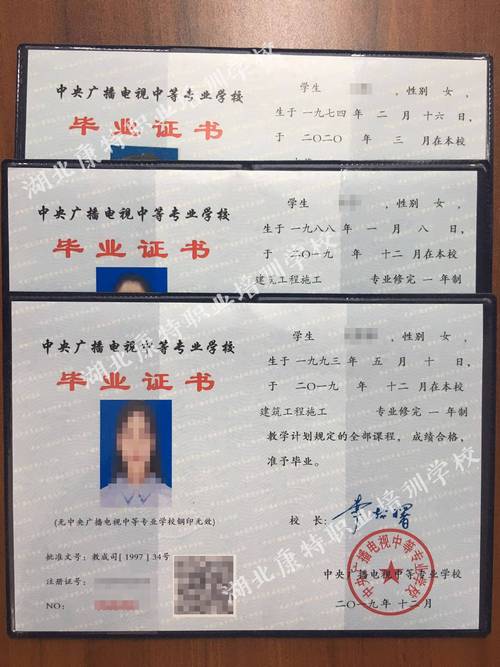 中央广播电视中等专业学校
毕业证书
学生 ，性别 女，
生于一九七四年 二 月 十六 日，
于 二〇二〇 年 三 月在本校
中央广播电视中等专业学校
毕业证书
学生 ，性别 女，
生于一九八八年 一 月 八 日，
于 二〇一九 年 十二 月在本校
建筑工程施工 专业修完 一 年制
中央广播电视中等专业学校
毕业证书
(无中央广播电视中等专业学校钢印无效)
批准文号：教成司[1997]34号
注册证号：
NO：
学生 ，性别 女，
生于一九九三年 五 月 十 日，
于 二〇一九 年 十二 月在本校
建筑工程施工 专业修完 一 年制
教学计划规定的全部课程，成绩合格，
准予毕业。
校 长：
中央广播电视中等专业学校
二〇一九年 十二月
中央广播电视中等专业学校
湖北康特职业培训学校
湖北康特职业培训学校
湖北康特职业培训学校